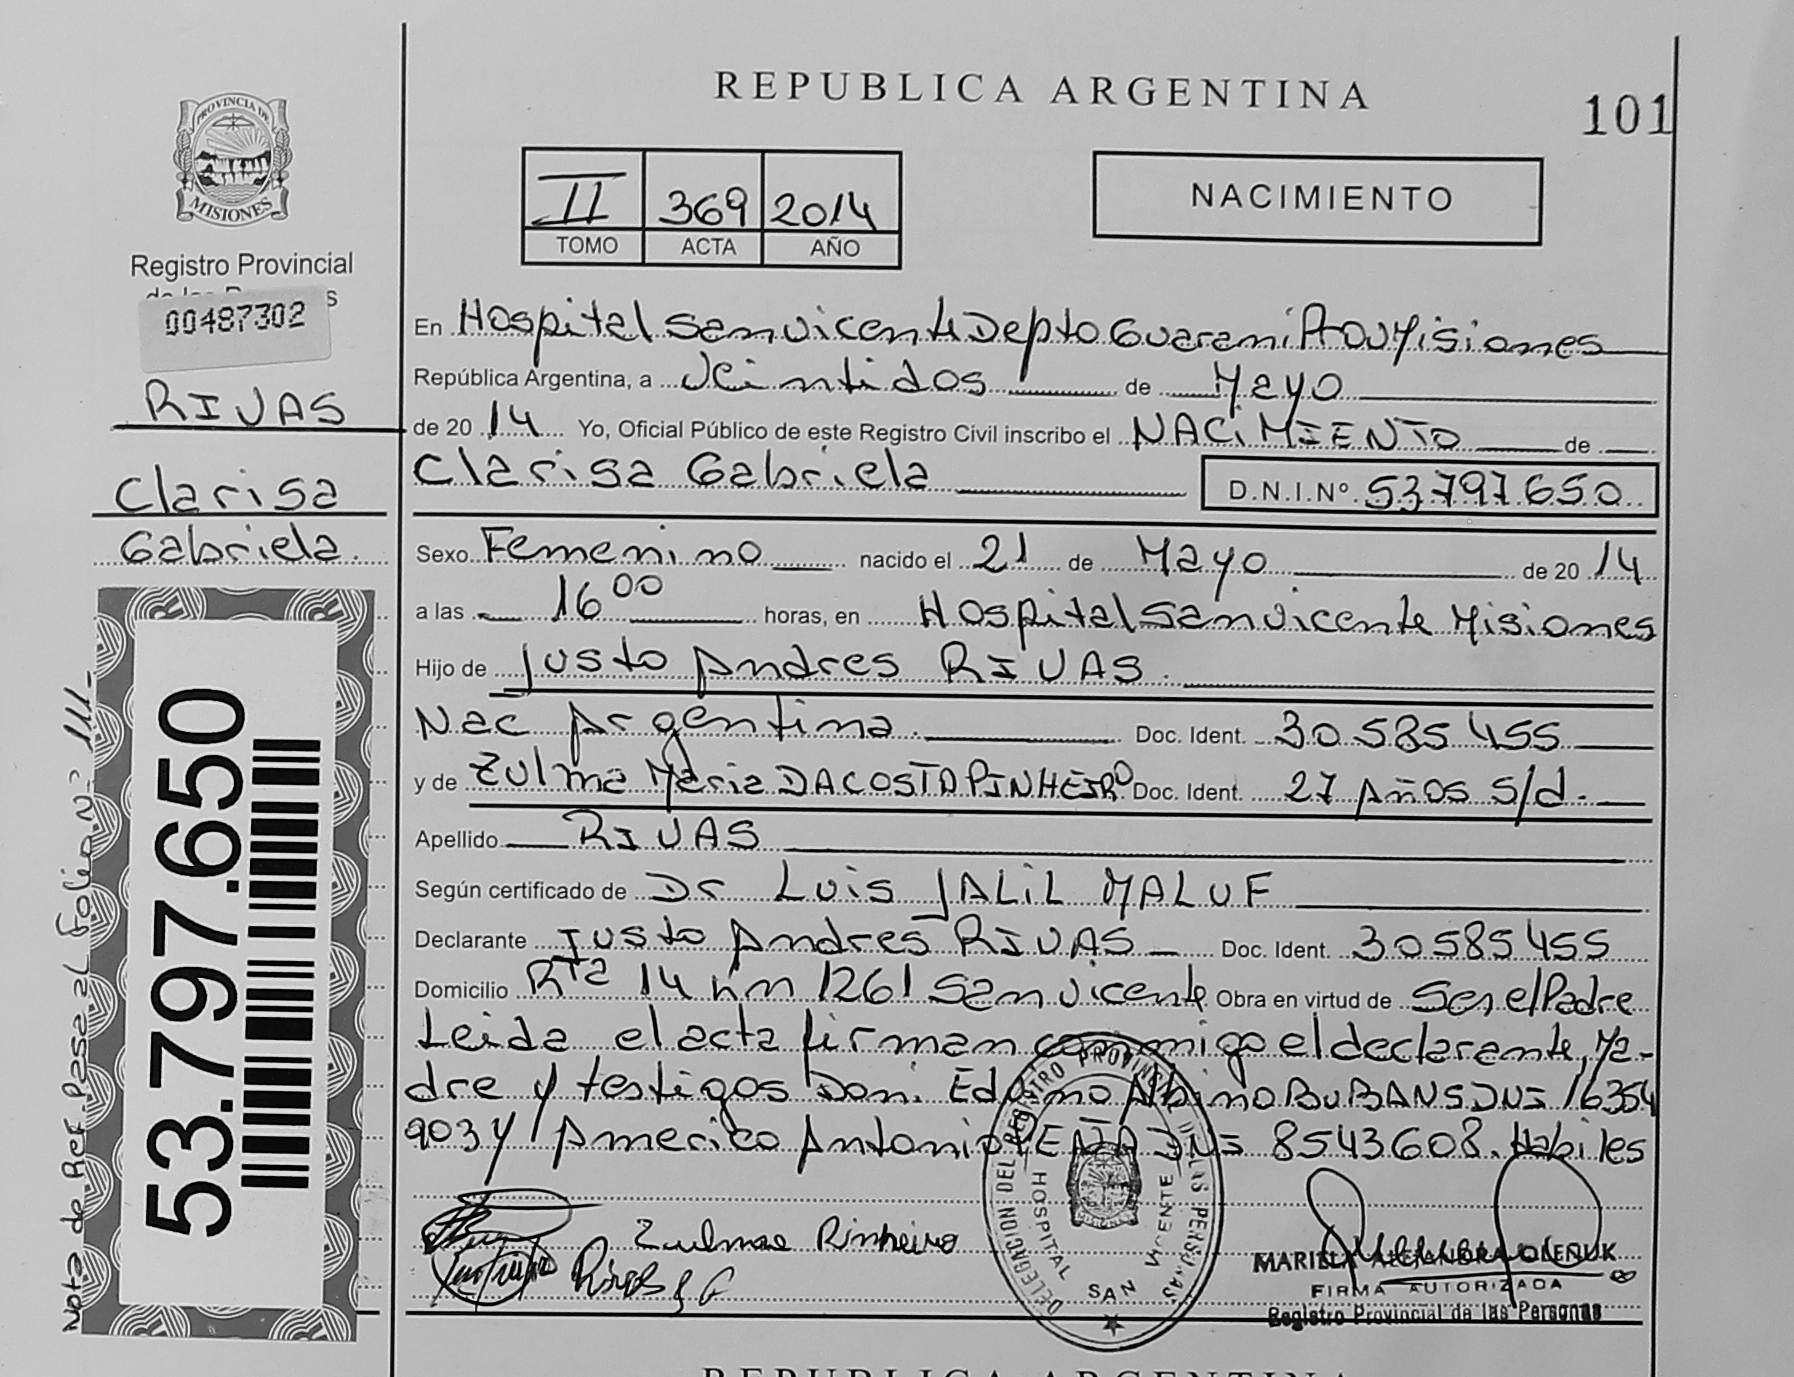 REPUBLICA ARGENTINA
101
PROVINCIA DE
MISIONES
Registro Provincial
00487302
II 369 2014
TOMO ACTA AÑO
NACIMIENTO
RIVAS
Clarisa
Gabriela.
53.797.650
Nota de Ref. Pasa al Folio Nº 111-
En Hospital San Vicente Depto Guarani Prov Misiones
República Argentina, a Veintidos de Mayo
de 20 14 Yo, Oficial Público de este Registro Civil inscribo el NACIMIENTO de
Clarisa Gabriela D.N.I.Nº 53797650
Sexo Femenino nacido el 21 de Mayo de 20 14
a las 16 00 horas, en Hospital San Vicente Misiones
Hijo de Justo Andres RIVAS.
Nac Argentina. Doc. Ident. 30585455
y de Zulma Maria DACOSTA PINHEIRO Doc. Ident. 27 Años s/d.
Apellido RIVAS
Según certificado de Dr Luis JALIL MALUF
Declarante Justo Andres RIVAS Doc. Ident. 30585455
Domicilio Rta 14 km 1261 San Vicente Obra en virtud de Ser el Padre
Leida el acta firman conmigo el declarante, Ma-
dre y testigos Don. Albino BUBANS DNI 16354
903 y Americo Antonio DNI 8543608. Habiles
Zulmae Pinheiro
DELEGACION DEL REGISTRO PROVINCIAL DE LAS PERSONAS
HOSPITAL SAN VICENTE
MARIELA ALEJANDRA OLENUK
FIRMA AUTORIZADA
Registro Provincial de las Personas
REPUBLICA ARGENTINA